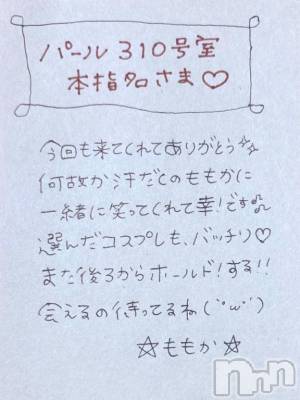 パール310号室
本指名さま♡
今回も来てくれてありがとう✨
何故か汗だくのももかに
一緒に笑ってくれて幸!です♪
選んだコスプレも、バッチリ♡
また後ろからホールド!する!!
会えるの待ってるね(˙ω˙)
☆ももか☆